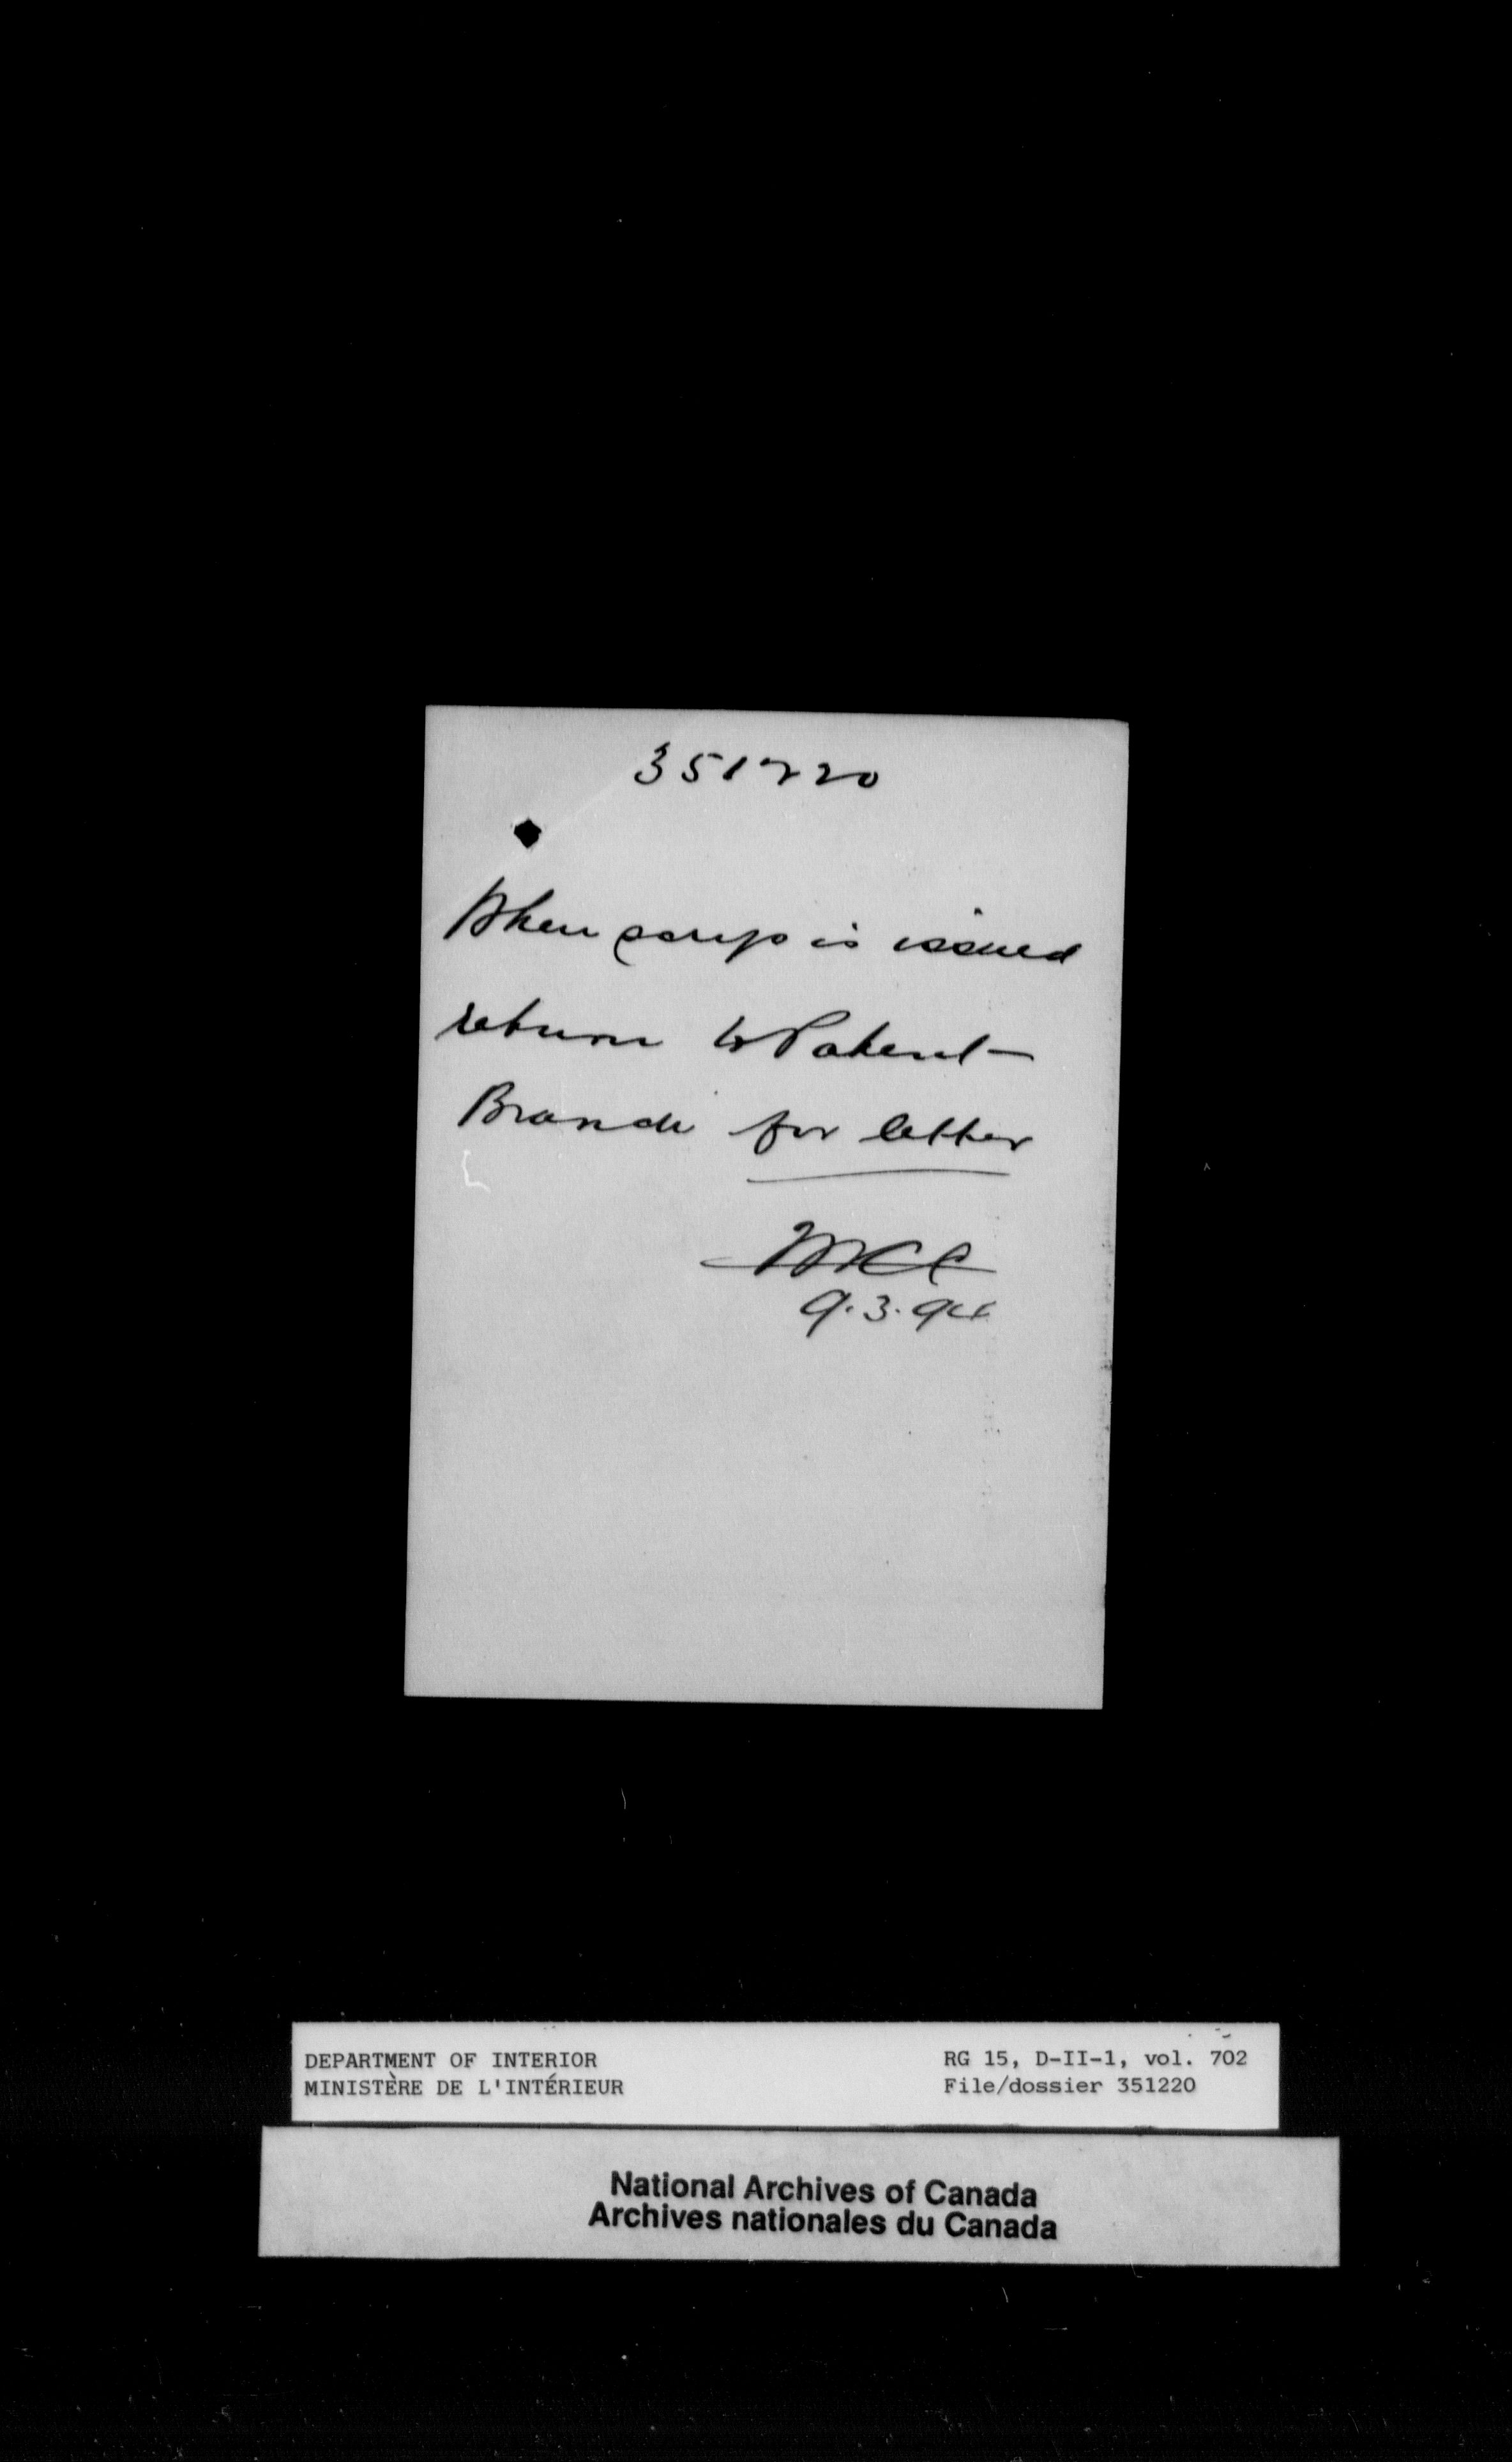 351220
When scrip is issued
return to Patent
Branch for letter
9.3.94
DEPARTMENT OF INTERIOR
MINISTÈRE DE L'INTÉRIEUR
RG 15, D-II-1, vol. 702
File/dossier 351220
National Archives of Canada
Archives nationales du Canada